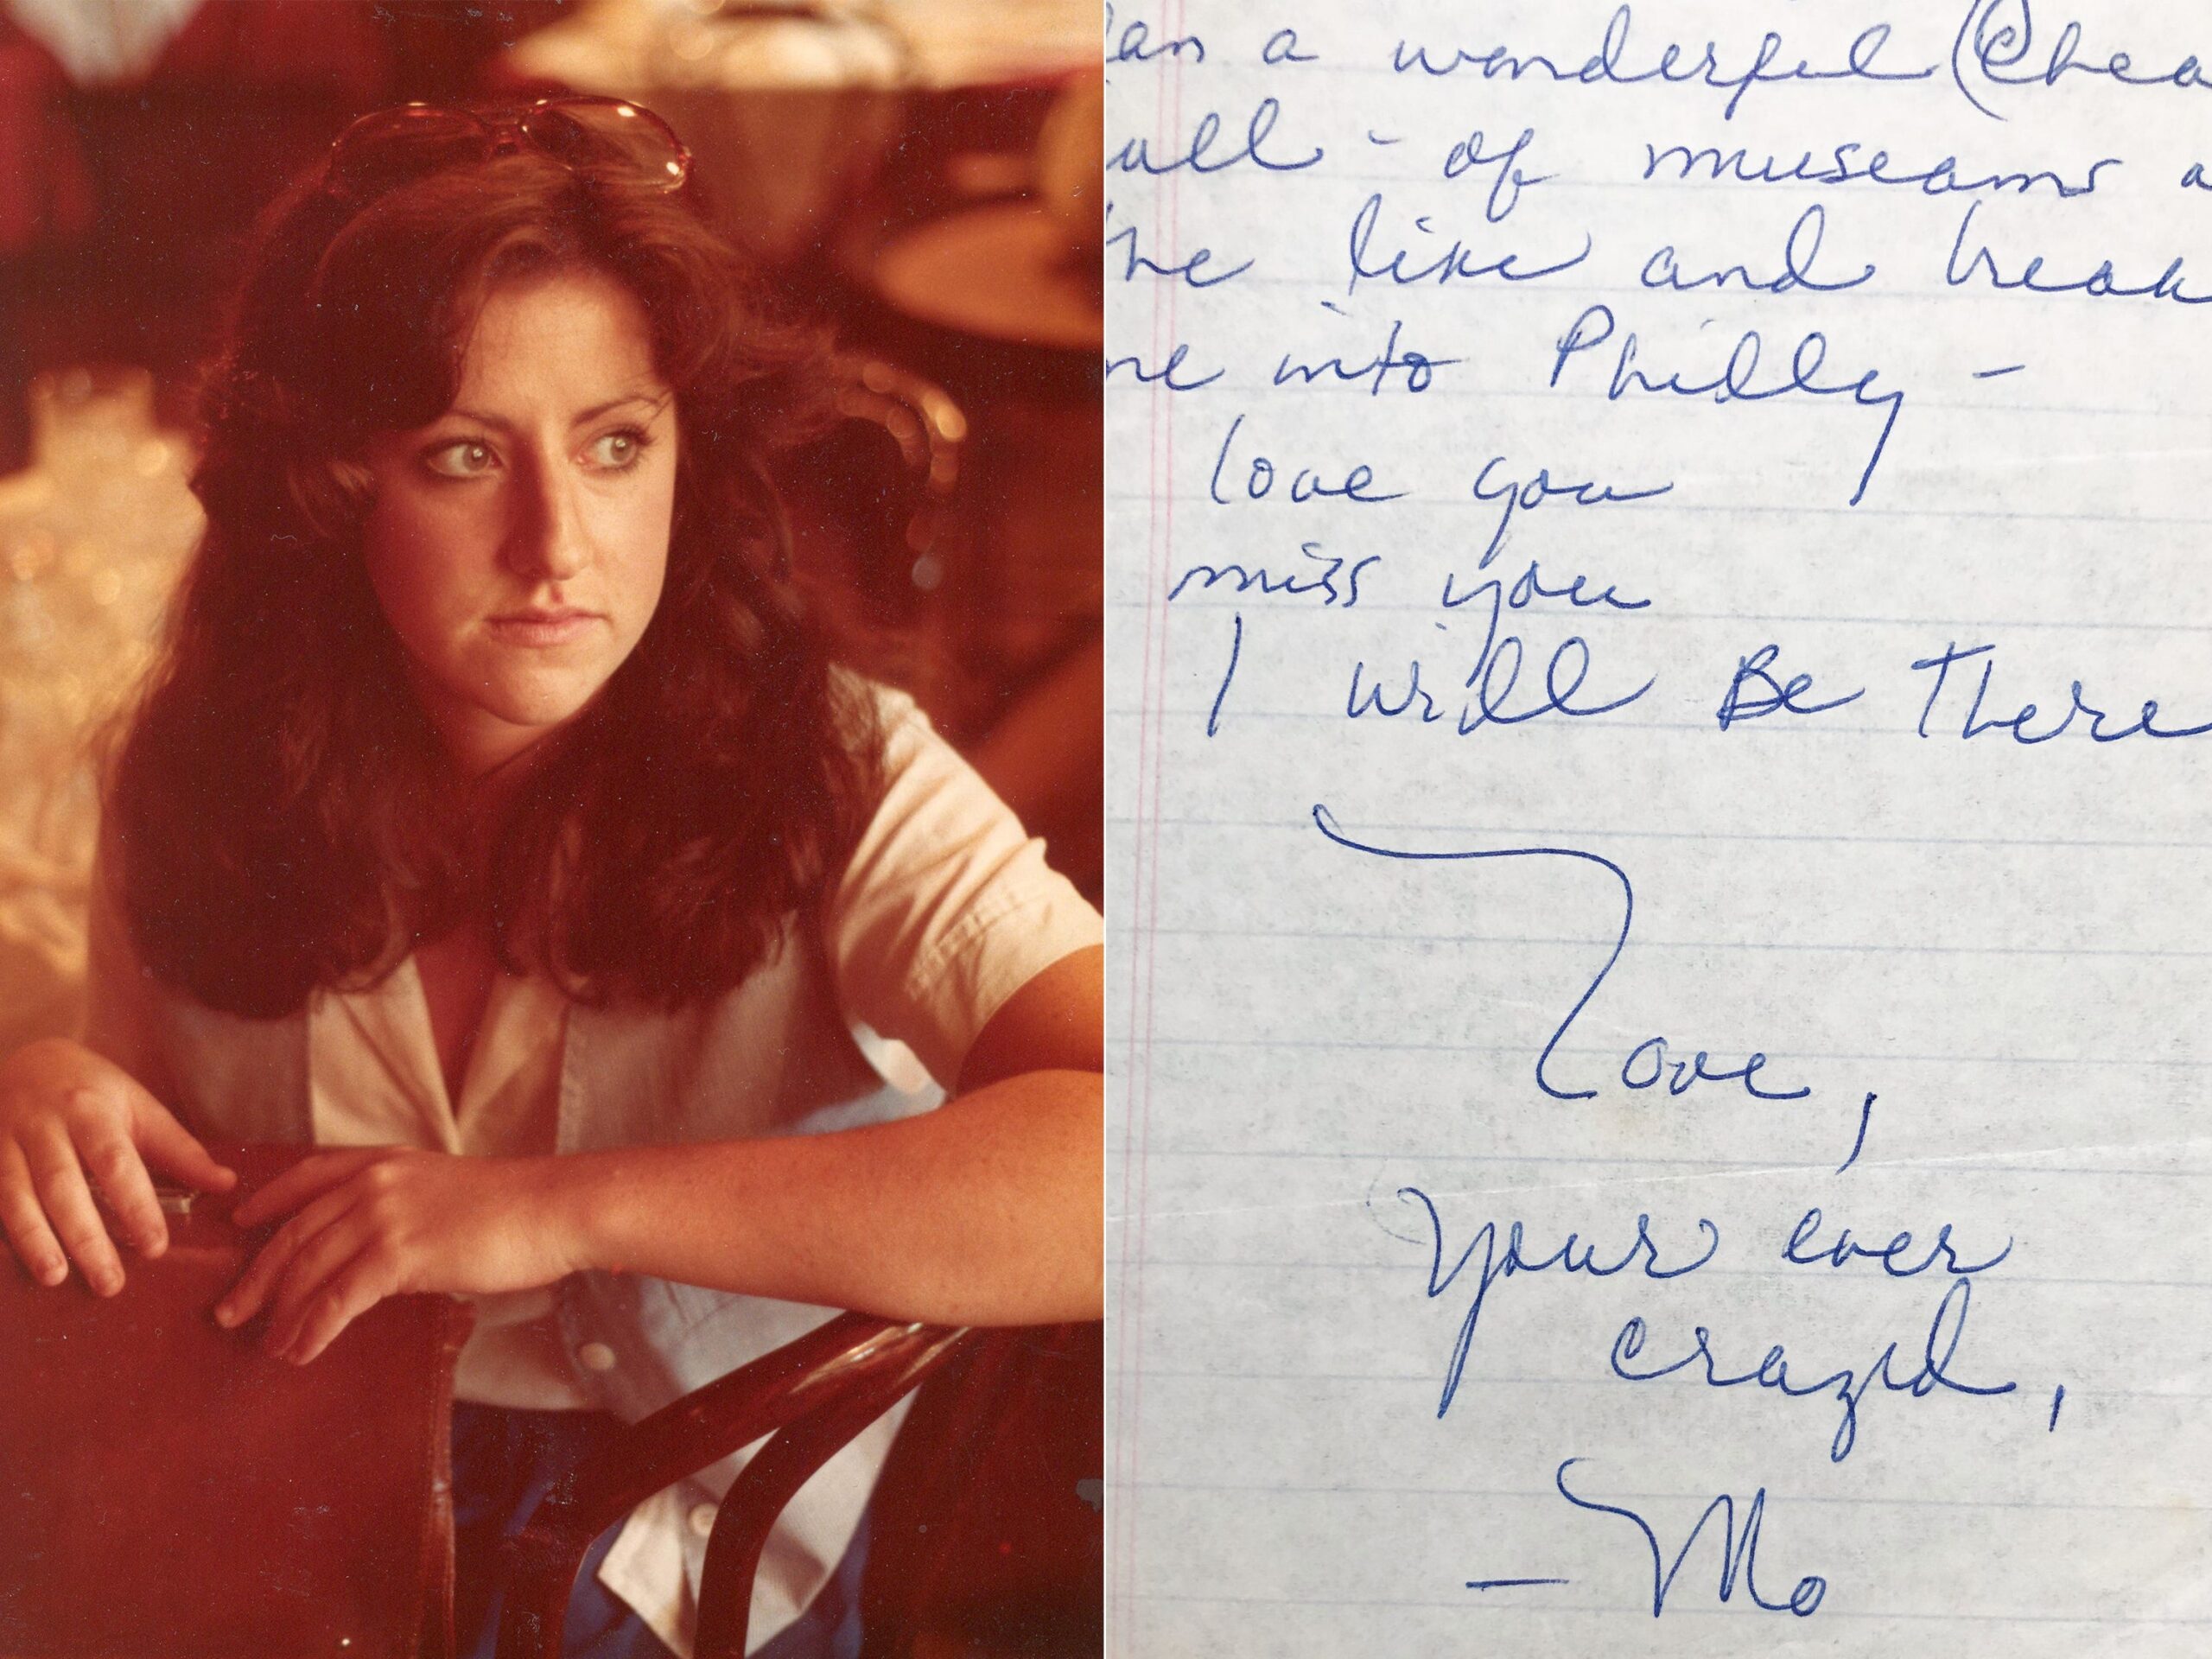 an a wonderful (Chea
all - of museams a
he like and break
ne into Philly -
love you
miss you
I will Be There
Love,
your ever
crazed,
- Mo